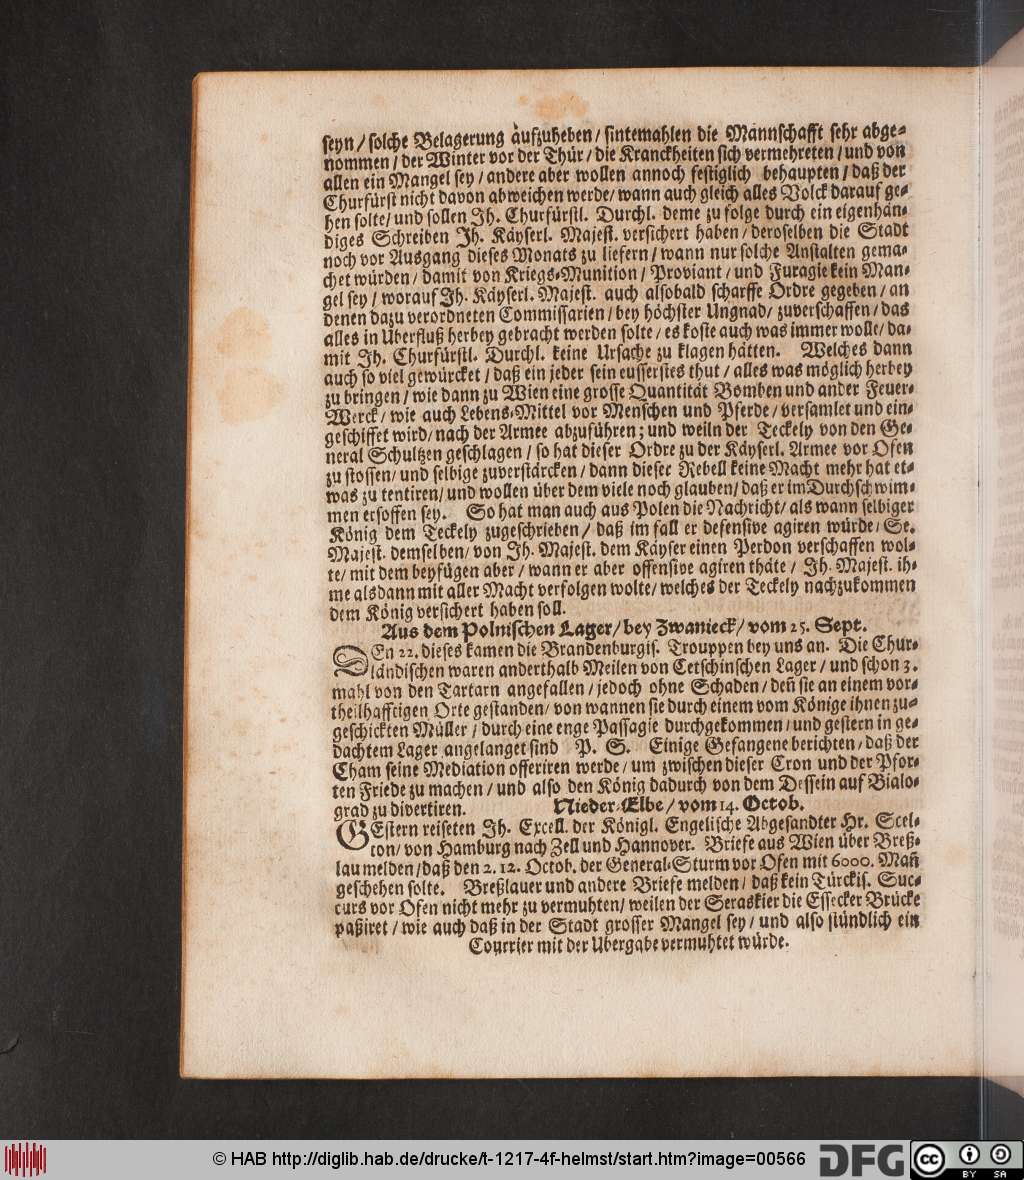 seyn / solche Belagerung aufzuheben / sintemahlen die Mannschafft sehr abge-
nommen / der Winter vor der Thür / die Kranckheiten sich vermehreten / und von
allen ein Mangel sey / andere aber wollen annoch festiglich behaupten / daß der
Churfürst nicht davon abweichen werde / wann auch gleich alles Volck darauf ge-
hen solte / und sollen Ih. Churfürstl. Durchl. deme zu folge durch ein eigenhän-
diges Schreiben Ih. Käyserl. Majest. versichert haben / deroselben die Stadt
noch vor Ausgang dieses Monats zu liefern / wann nur solche Anstalten gema-
chet würden / damit von Kriegs-Munition / Proviant / und Furagie kein Man-
gel sey / worauf Ih. Käyserl. Majest. auch alsobald scharffe Ordre gegeben / an
denen dazu verordneten Commissarien / bey höchster Ungnad / zuverschaffen / das
alles in Uberfluß herbey gebracht werden solte / es koste auch was immer wolle / da-
mit Ih. Churfürstl. Durchl. keine Ursache zu klagen hätten. Welches dann
auch so viel gewürcket / daß ein jeder sein eusserstes thut / alles was möglich herbey
zu bringen / wie dann zu Wien eine grosse Quantität Bomben und ander Feuer-
Werck / wie auch Lebens-Mittel vor Menschen und Pferde / versamlet und ein-
geschiffet wird / nach der Armee abzuführen; und weiln der Teckely von den Ge-
neral Schultzen geschlagen / so hat dieser Ordre zu der Käyserl. Armee vor Ofen
zu stossen / und selbige zuverstärcken / dann dieser Rebell keine Macht mehr hat et-
was zu tentiren / und wollen über dem viele noch glauben / daß er im Durchschwim-
men ersoffen sey. So hat man auch aus Polen die Nachricht / als wann selbiger
König dem Teckely zugeschrieben / daß im fall er defensive agiren würde / Se.
Majest. demselben / von Ih. Majest. dem Käyser einen Perdon verschaffen wol-
te / mit dem beyfügen aber / wann er aber offensive agiren thäte / Ih. Majest. ih-
me alsdann mit aller Macht verfolgen wolte / welches der Teckely nachzukommen
dem König versichert haben soll.
Aus dem Polnischen Lager / bey Zwanieck / vom 25. Sept.
DEn 22. dieses kamen die Brandenburgis. Trouppen bey uns an. Die Chur-
ländischen waren anderthalb Meilen von Cetschinschen Lager / und schon 3.
mahl von den Tartarn angefallen / jedoch ohne Schaden / deñ sie an einem vor-
theilhafftigen Orte gestanden / von wannen sie durch einem vom Könige ihnen zu-
geschickten Müller / durch eine enge Passagie durchgekommen / und gestern in ge-
dachtem Lager angelanget sind P. S. Einige Gefangene berichten / daß der
Cham seine Mediation offeriren werde / um zwischen dieser Cron und der Pfor-
ten Friede zu machen / und also den König dadurch von dem Dessein auf Bialo-
grad zu divertiren. Nieder-Elbe / vom 14. Octob.
GEstern reiseten Ih. Excell. der Königl. Engelische Abgesandter Hr. Scel-
ton / von Hamburg nach Zell und Hannover. Briefe aus Wien über Breß-
lau melden / daß den 2. 12. Octob. der General-Sturm vor Ofen mit 6000. Mañ
geschehen solte. Breßlauer und andere Briefe melden / daß kein Türckis. Suc-
curs vor Ofen nicht mehr zu vermuhten / weilen der Seraskier die Essecker Brücke
paßiret / wie auch daß in der Stadt grosser Mangel sey / und also stündlich ein
Courrier mit der Ubergabe vermuhtet würde.
© HAB http://diglib.hab.de/drucke/t-1217-4f-helmst/start.htm?image=00566
DFG
cc BY SA